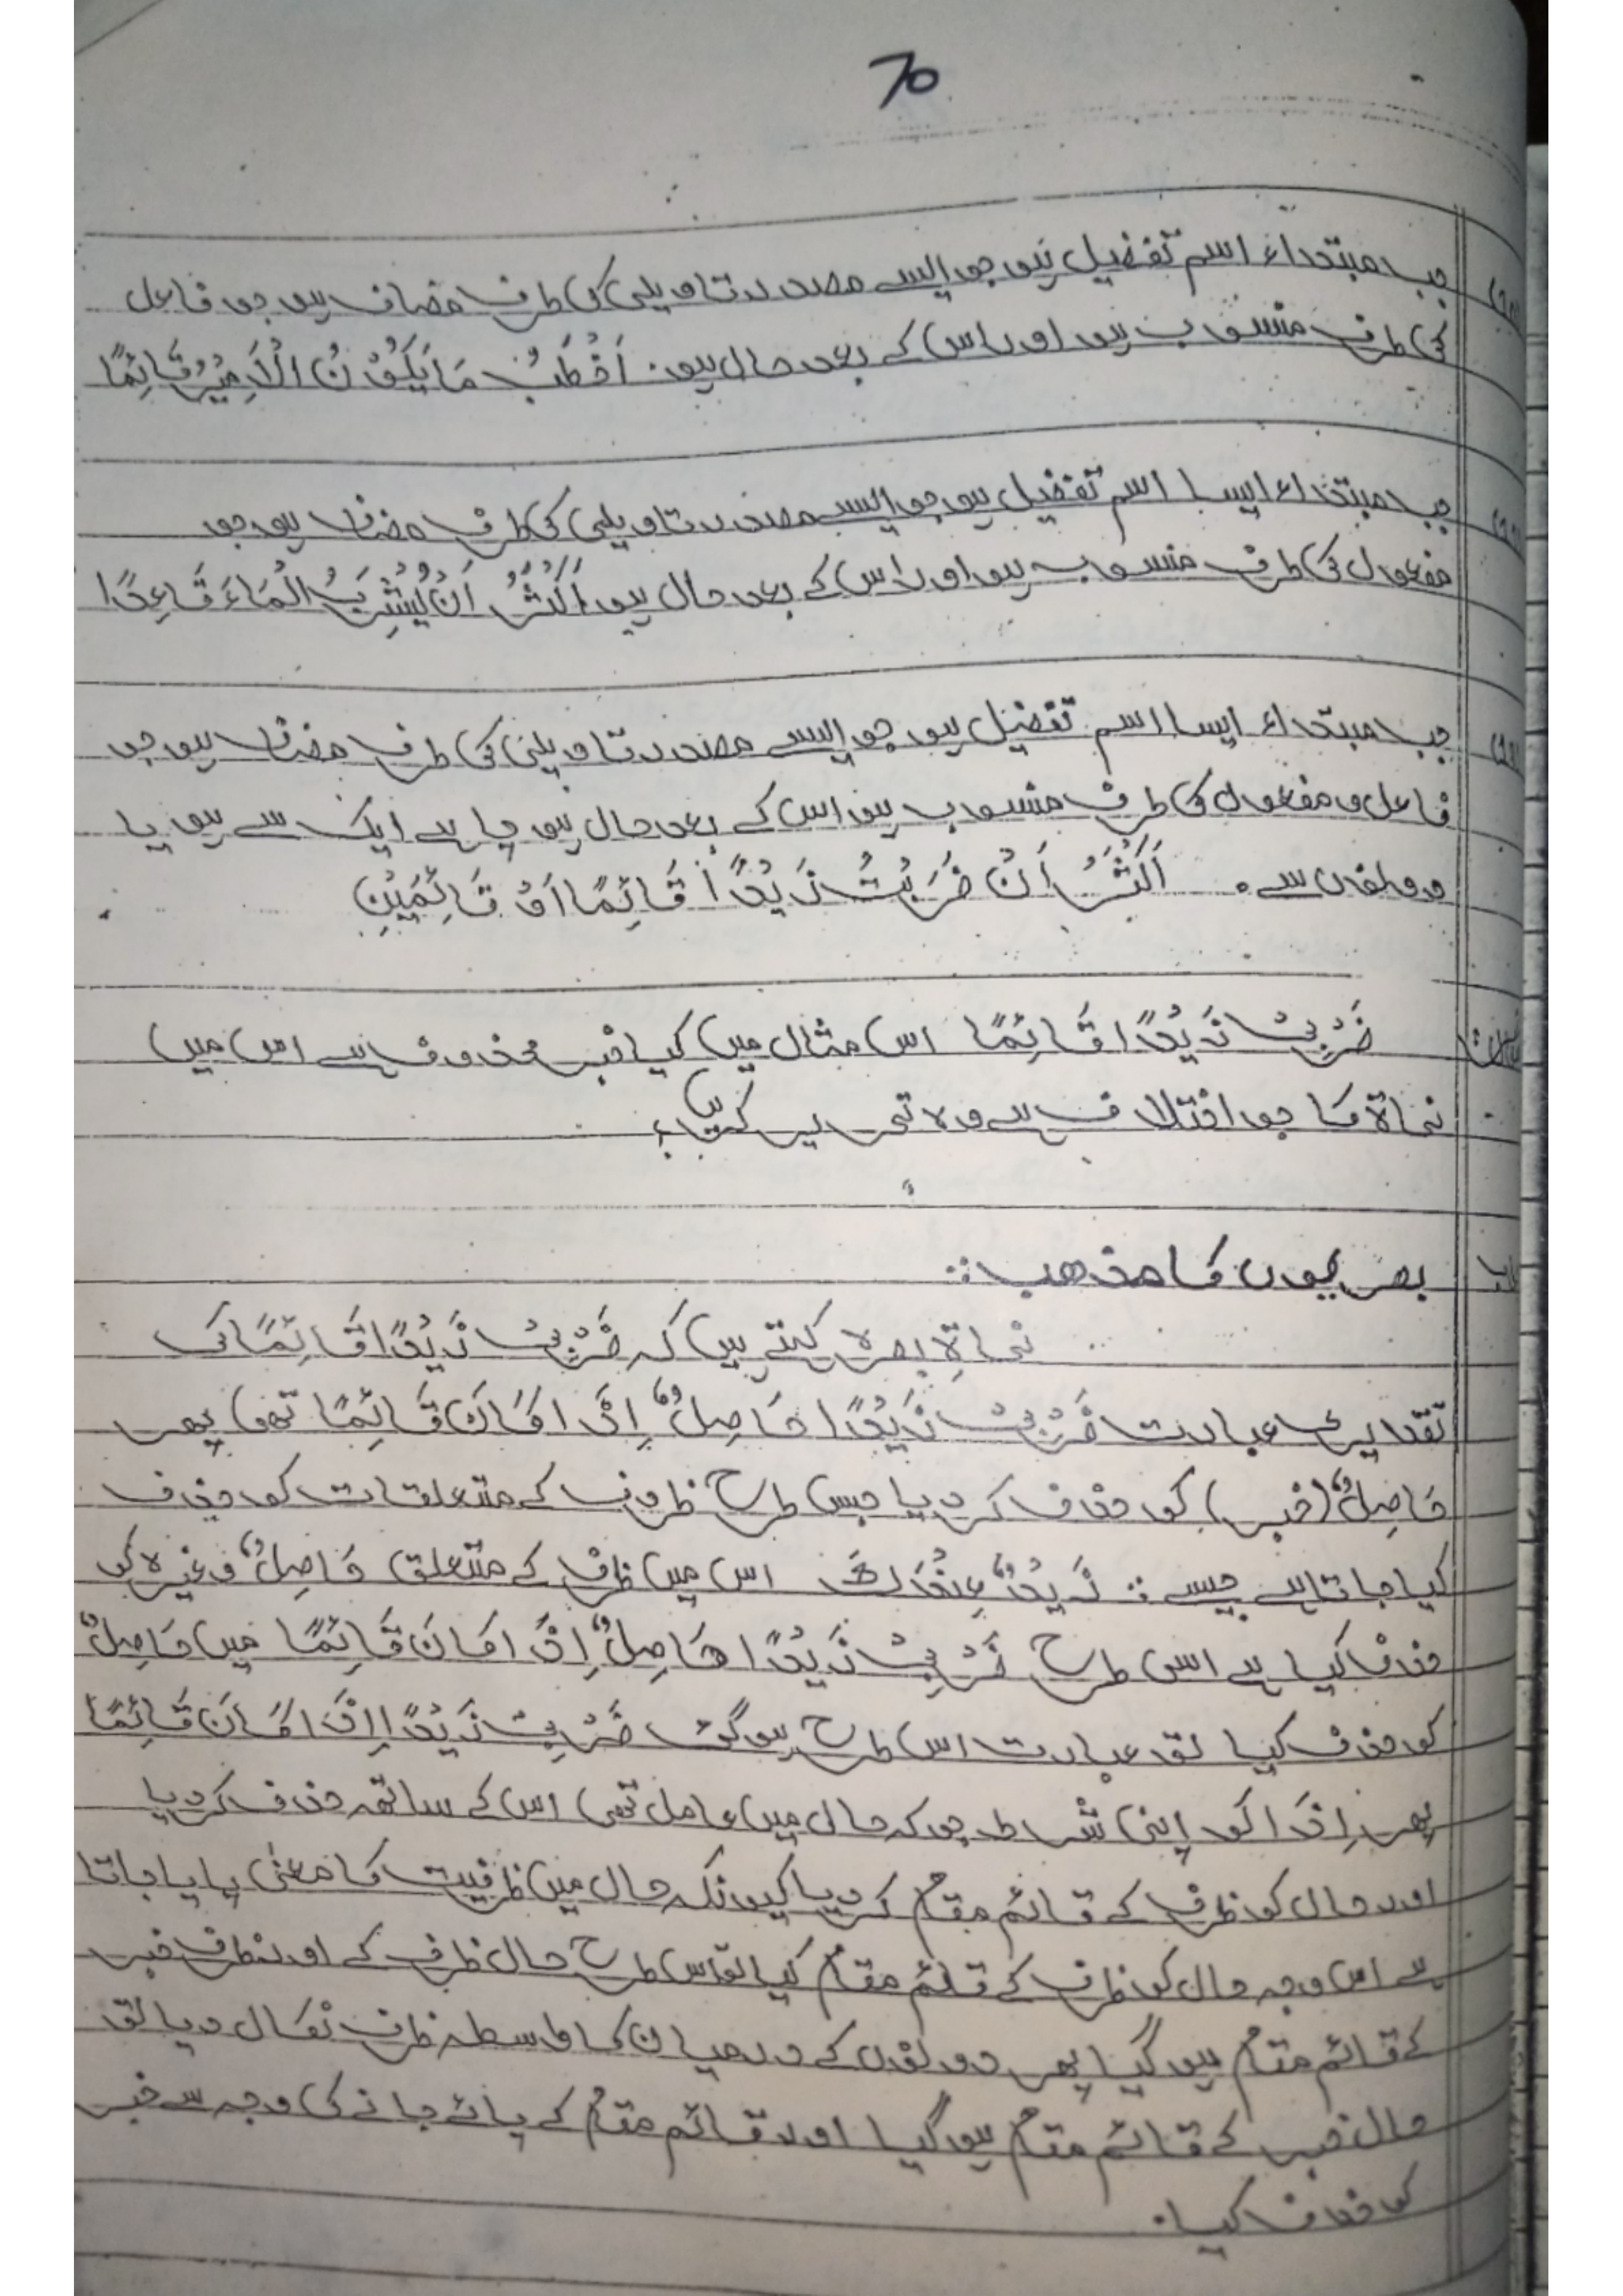 70
جب مبتداء اسم تفضیل ہو جو ایسے مصدر تاویلی کی طرف مضاف ہو جو فاعل
کی طرف منسوب ہو اور اس کے بعد حال ہو۔ اَخْطَبُ مَا یَکُوْنُ الْاَمِیْرُ قَائِمًا
جب مبتداء ایسا اسم تفضیل ہو جو ایسے مصدر تاویلی کی طرف مضاف ہو جو
مفعول کی طرف منسوب ہو اور اس کے بعد حال ہو اَکْثَرُ اَنْ یُّشْرَبُ الْمَاءَ قَاعِدًا
جب مبتداء ایسا اسم تفضیل ہو جو ایسے مصدر تاویلی کی طرف مضاف ہو جو
فاعل و مفعول کی طرف منسوب ہو اس کے بعد حال ہو چاہے ایک سے ہو یا
دونوں سے۔ اَکْثَرُ اَنْ ضَرَبْتُ زَیْدًا قَائِمًا اَوْ قَائِمَیْنِ
ضَرْبِیْ زَیْدًا قَائِمًا اس مثال میں کیا خبر محذوف ہے اس میں
نحاۃ کا جو اختلاف ہے وہ تحریر کریں؟
بصریوں کا مذھب::
نحاۃِ بصرہ کہتے ہیں کہ ضَرْبِیْ زَیْدًا قَائِمًا کی
تقدیری عبارت ضَرْبِیْ زَیْدًا حَاصِلٌ اِذَا کَانَ قَائِمًا تھی پھر
حَاصِلٌ (خبر) کو حذف کر دیا جس طرح ظروف کے متعلقات کو حذف
کیا جاتا ہے جیسے :: زَیْدٌ عِنْدَكَ اس میں ظرف کے متعلق حَاصِلٌ وغیرہ کو
حذف کیا ہے اس طرح ضَرْبِیْ زَیْدًا حَاصِلٌ اِذَا کَانَ قَائِمًا میں حَاصِلٌ
کو حذف کیا تو عبارت اس طرح ہو گئی ضَرْبِیْ زَیْدًا اِذَا کَانَ قَائِمًا
پھر اِذَا کو اپنی شرط جو کہ حال میں عامل تھی اس کے ساتھ حذف کر دیا
اور حال کو ظرف کے قائم مقام کر دیا کیونکہ حال میں ظرفیت کا معنی پایا جاتا
ہے اس وجہ حال کو ظرف کے قائم مقام کیا تو اس طرح حال ظرف کے اور ظرف خبر
کے قائم مقام ہو گیا پھر دونوں کے درمیان کا واسطہ ظرف نکال دیا تو
حال خبر کے قائم مقام ہو گیا اور قائم مقام کے پائے جانے کی وجہ سے خبر
کو حذف کیا۔